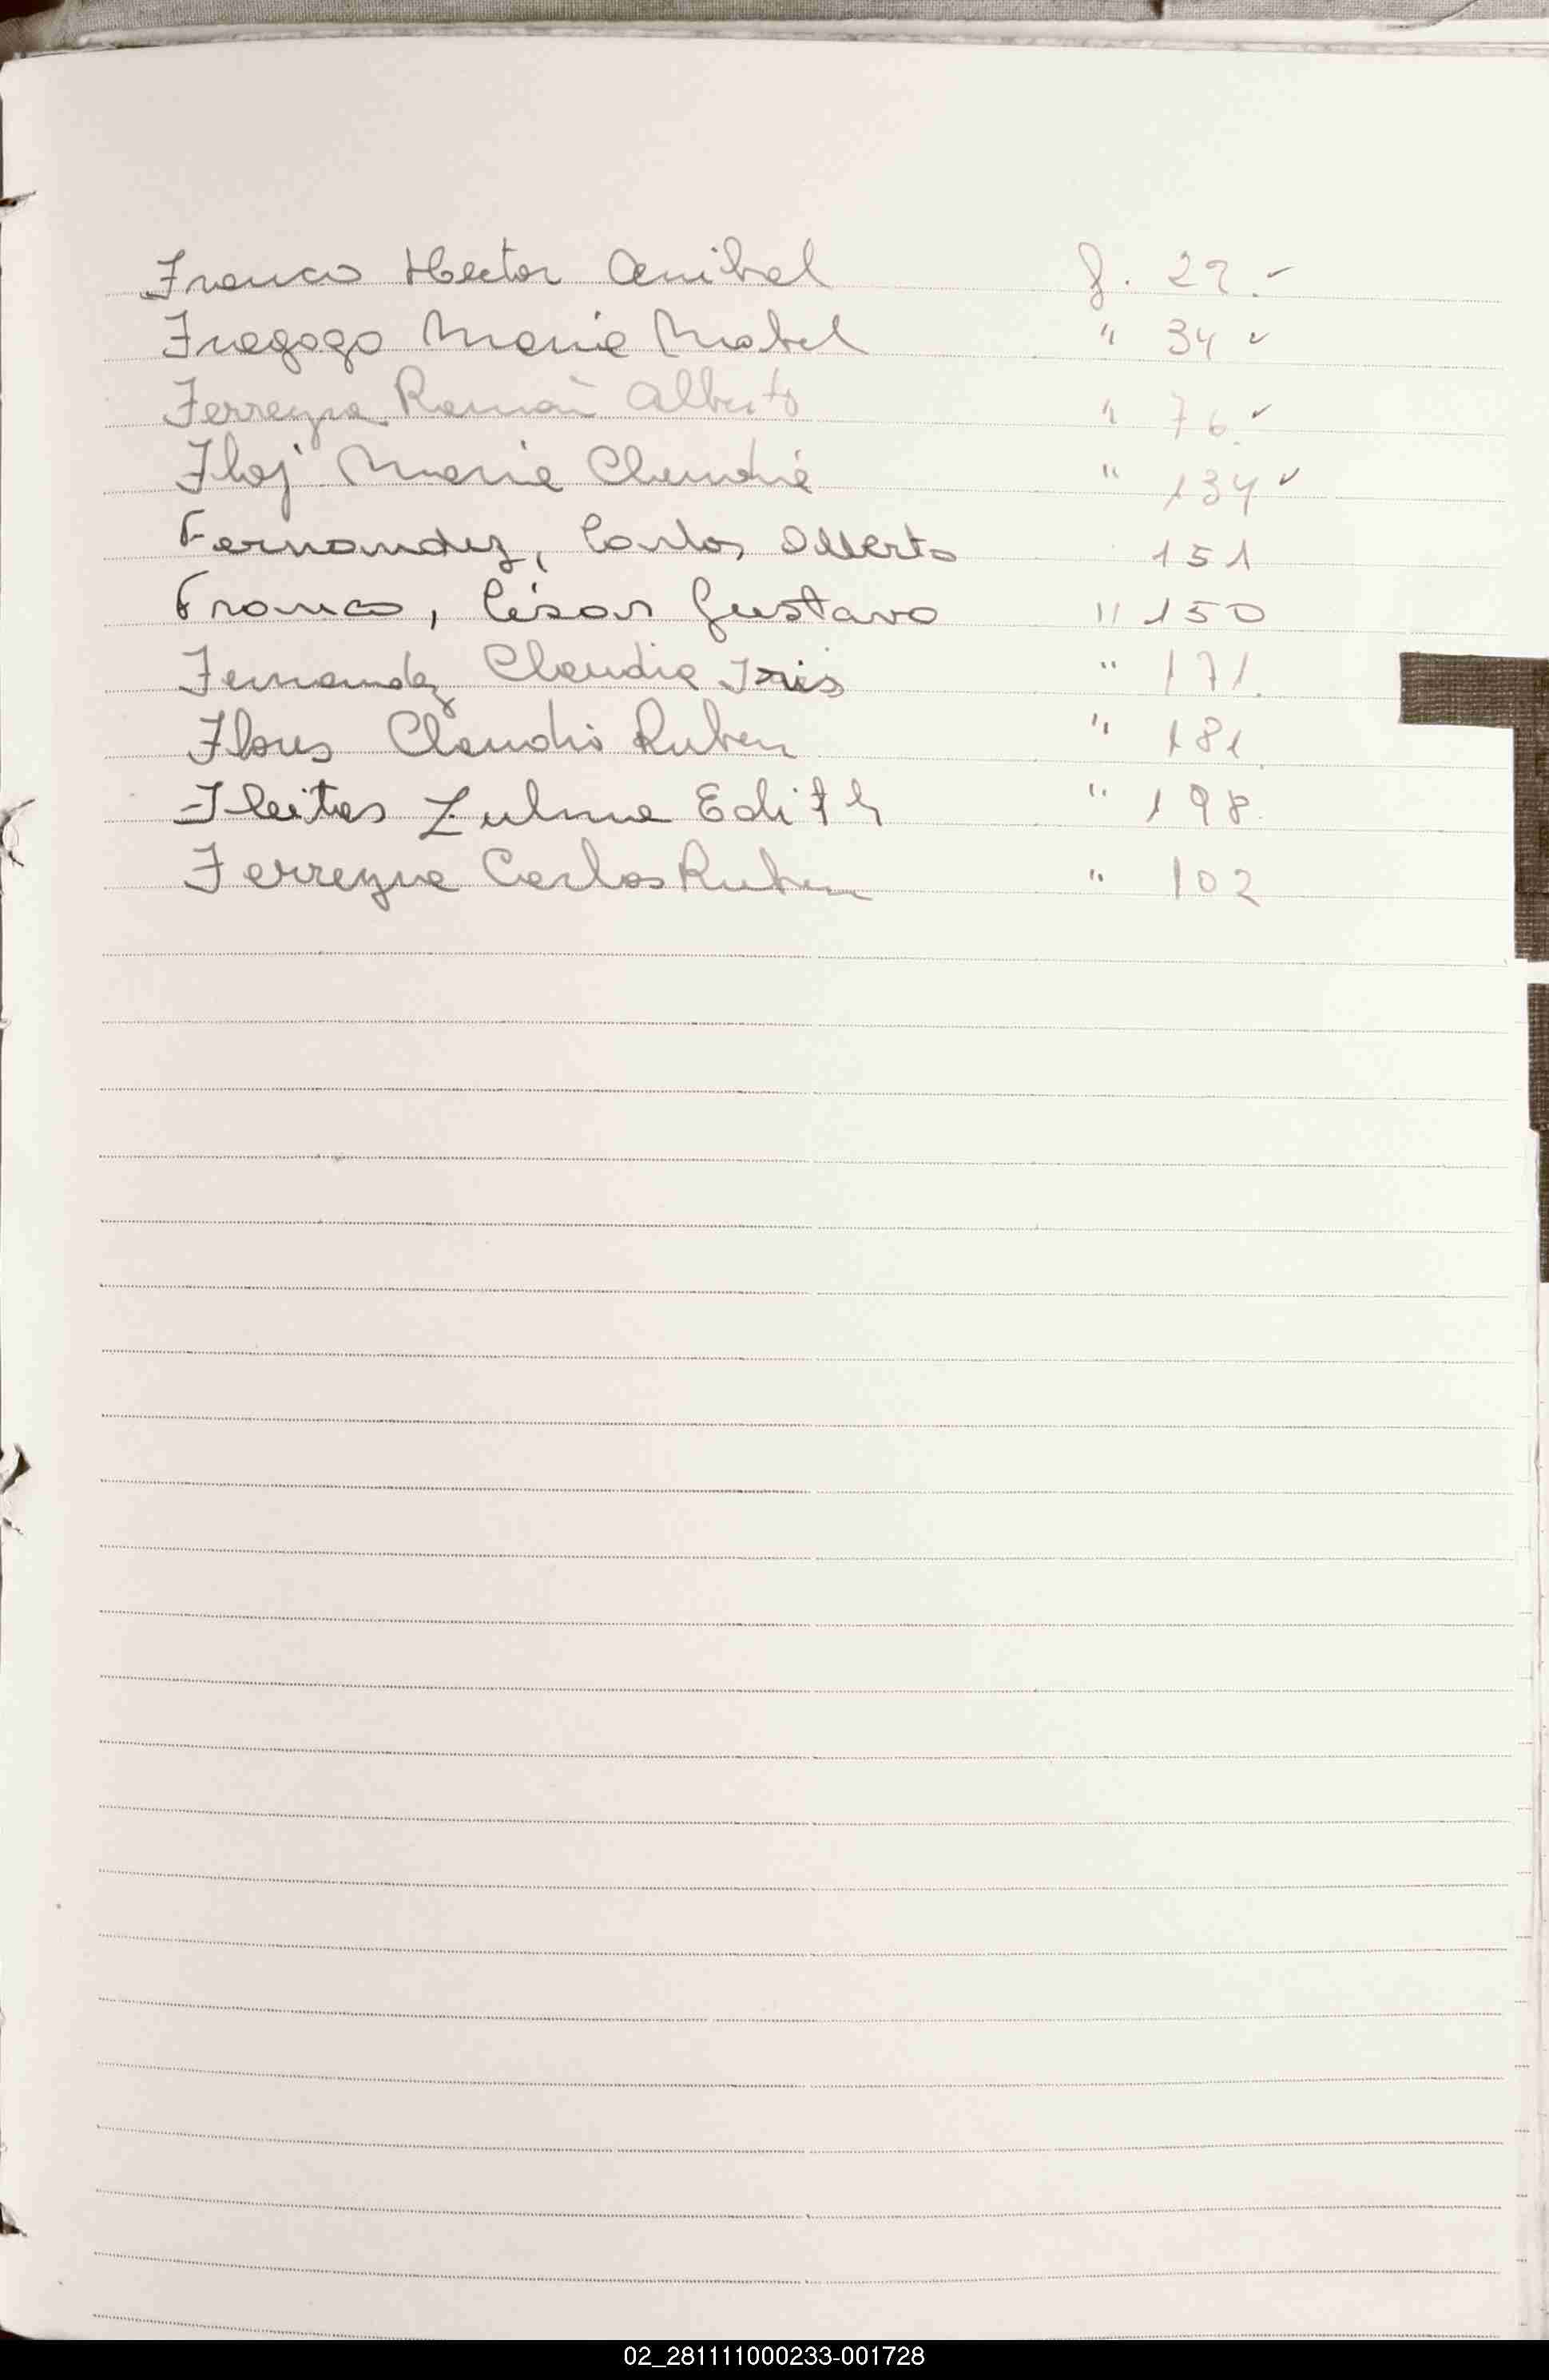 Franco Hector Anibal f. 29.-
Fragozo Maria Mabel " 34 ✓
Ferreyra Ramón Alberto " 76. ✓
Maria Claudia " 134 ✓
Fernandez, Carlos Alberto 151
Franco, César Gustavo " 150
Fernandez Claudia Iris " 171.
Flores Claudio Ruben " 181
Fleitas Zulma Edith " 198.
Ferreyra Carlos Ruben " 102
02_281111000233-001728